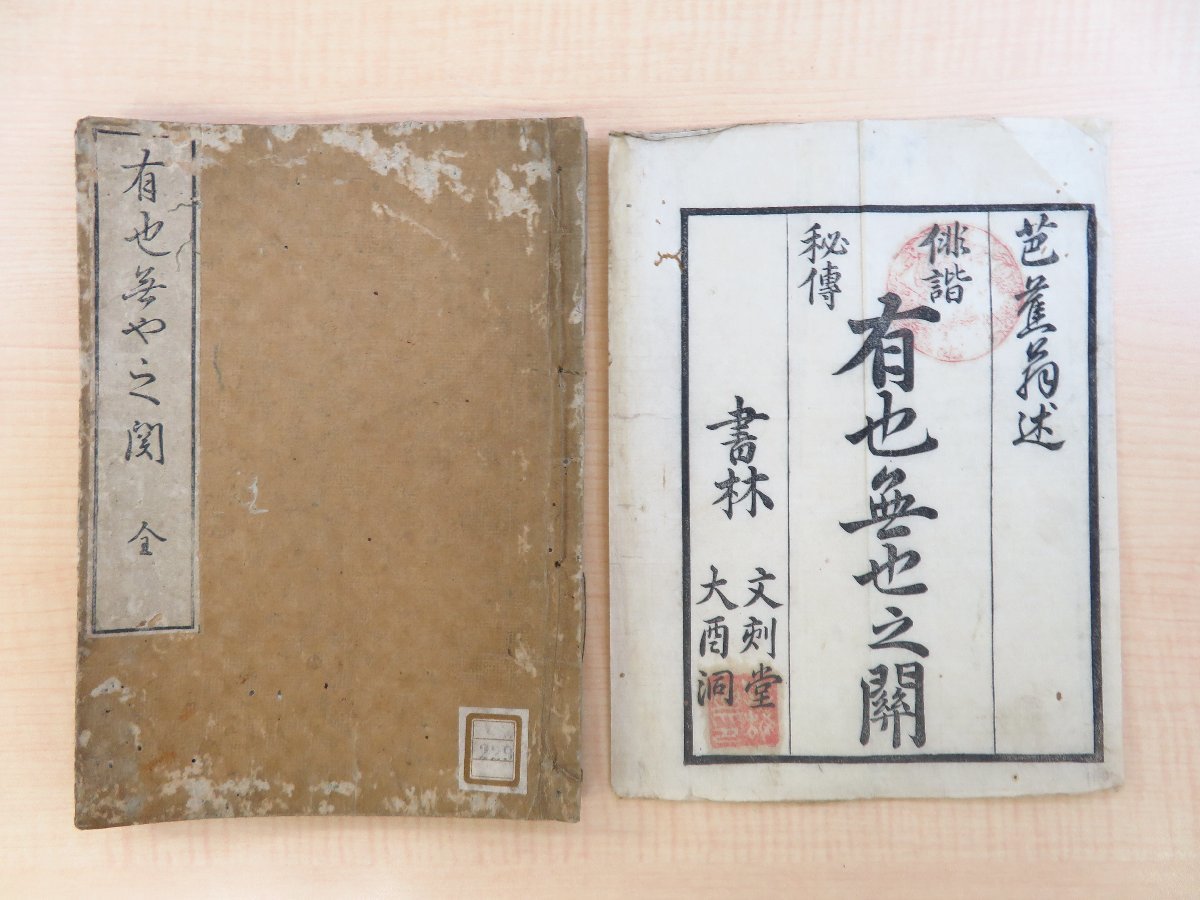 有也無や之関
全
芭蕉翁述
俳諧
秘傳
有也無也之關
書林
文刻堂
大酉洞